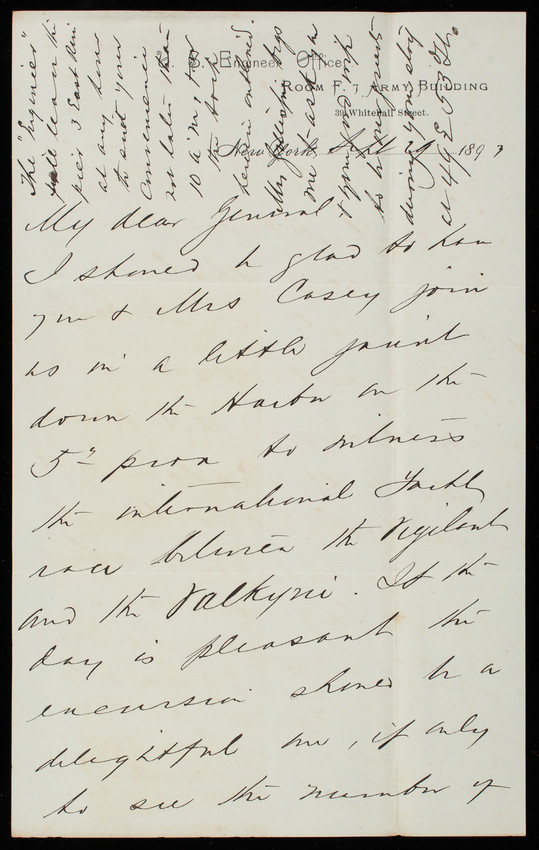 U. S. Engineer Office,
Room F. 7 Army Building
39 Whitehall Street.
New York, Sept 29 1893
My dear General
I should be glad to have
you & Mrs Casey join
us in a little jaunt
down the Harbor on the
5th prox to witness
the international Yacht
race between the Vigilant
and the Valkyrie. If the
day is pleasant the
excursion should be a
delightful one, if only
to see the number of
The "Engineer"
will leave the
pier 3 East River
at any hour
to suit your
convenience
not later than
10 a m, for
the trip
herein outlined.
Mrs Gillespie begs
me to ask you
& your wife
to be our guests
during your stay
at 49 E 53 St.